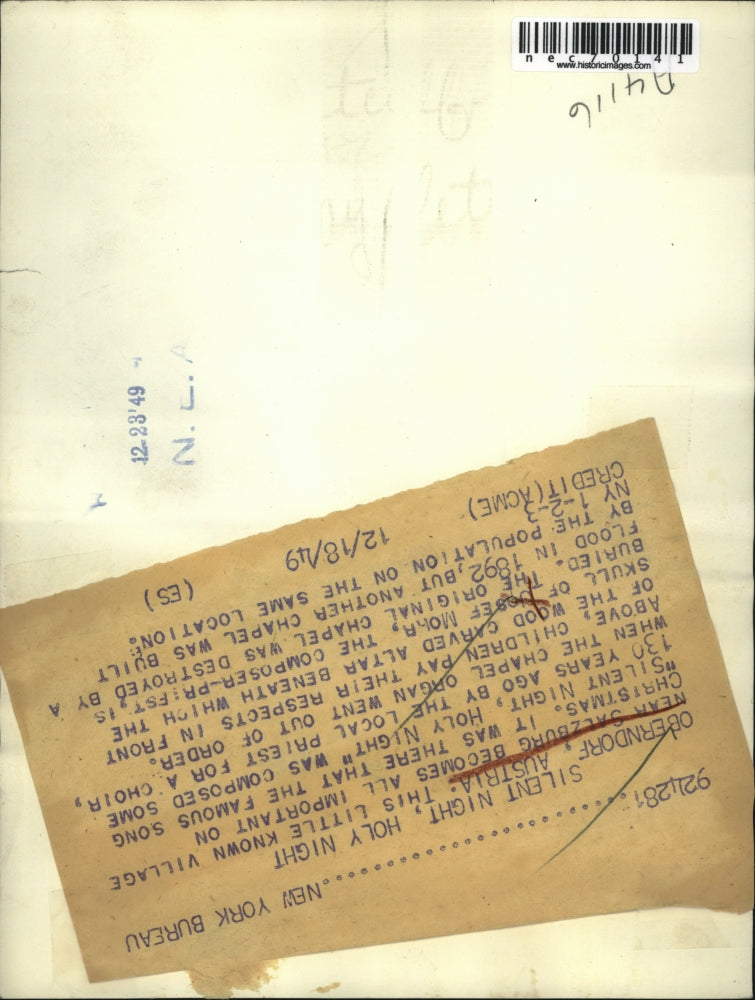 nec70141
www.historicimages.com
A4116
12-23'49
N. E. A
924281.......................NEW YORK BUREAU
SILENT NIGHT, HOLY NIGHT
OBERNDORF, AUSTRIA. THIS LITTLE KNOWN VILLAGE
NEAR SALZBURG BECOMES ALL IMPORTANT ON
CHRISTMAS. IT WAS THERE THAT THE FAMOUS SONG
"SILENT NIGHT, HOLY NIGHT" WAS COMPOSED SOME
130 YEARS AGO BY THE LOCAL PRIEST FOR A CHOIR,
WHEN THE CHAPEL ORGAN WENT OUT OF ORDER.
ABOVE, CHILDREN PAY THEIR RESPECTS IN FRONT
OF THE WOOD CARVED ALTAR BENEATH WHICH THE
SKULL OF JOSEF MOHR, THE COMPOSER-PRIEST, IS
BURIED. THE ORIGINAL CHAPEL WAS DESTROYED BY A
FLOOD IN 1892, BUT ANOTHER CHAPEL WAS BUILT
BY THE POPULATION ON THE SAME LOCATION.
NY 1-2-3
CREDIT (ACME) 12/18/49 (ES)